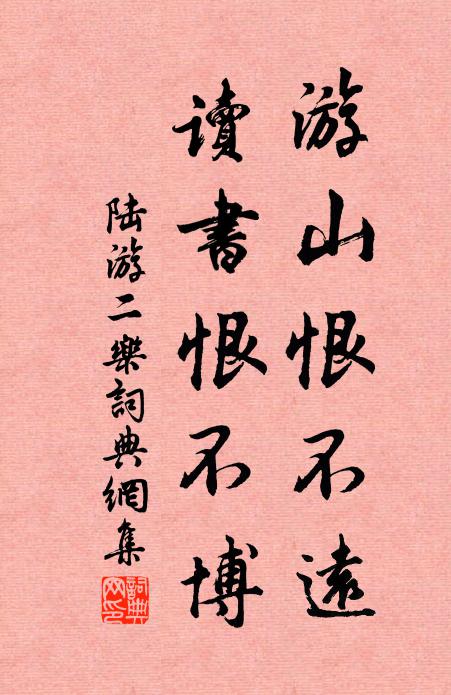 游山恨不遠
讀書恨不博
陸游二樂詞典網集
詞典網印